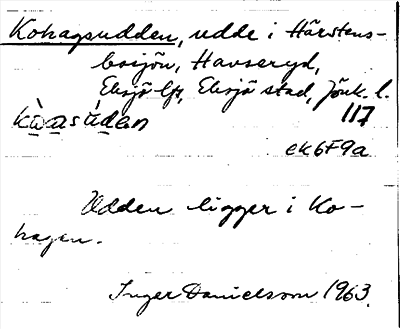 Kohagsudden, udde i Härstens-
bosjön, Havseryd,
Eksjö lfs, Eksjö stad, Jönk. l.
117
kàasúdən
ek6F9a
Udden ligger i Ko-
hagen.
Inger Danielsson 1963.